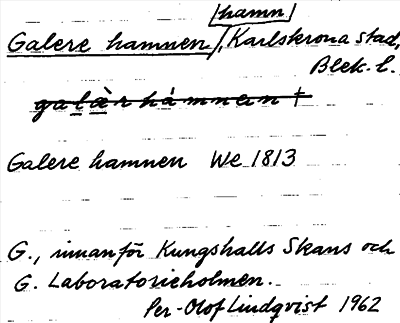 [hamn]
Galere hamnen, Karlskrona stad,
Blek. l.
galærhamnen †
Galere hamnen We 1813
G., innanför Kungshalls Skans och
G. Laboratorieholmen.
Per-Olof Lindqvist 1962